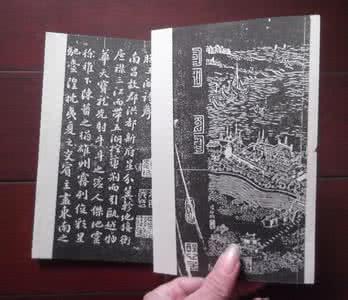 滕王閣詩序
南昌故郡洪都新府星分翼軫地接衡
廬襟三江而帶五湖控蠻荊而引甌越物
華天寶龍光射牛斗之墟人傑地靈
徐孺下陳蕃之榻雄州霧列俊彩星
馳臺隍枕夷夏之交賓主盡東南之